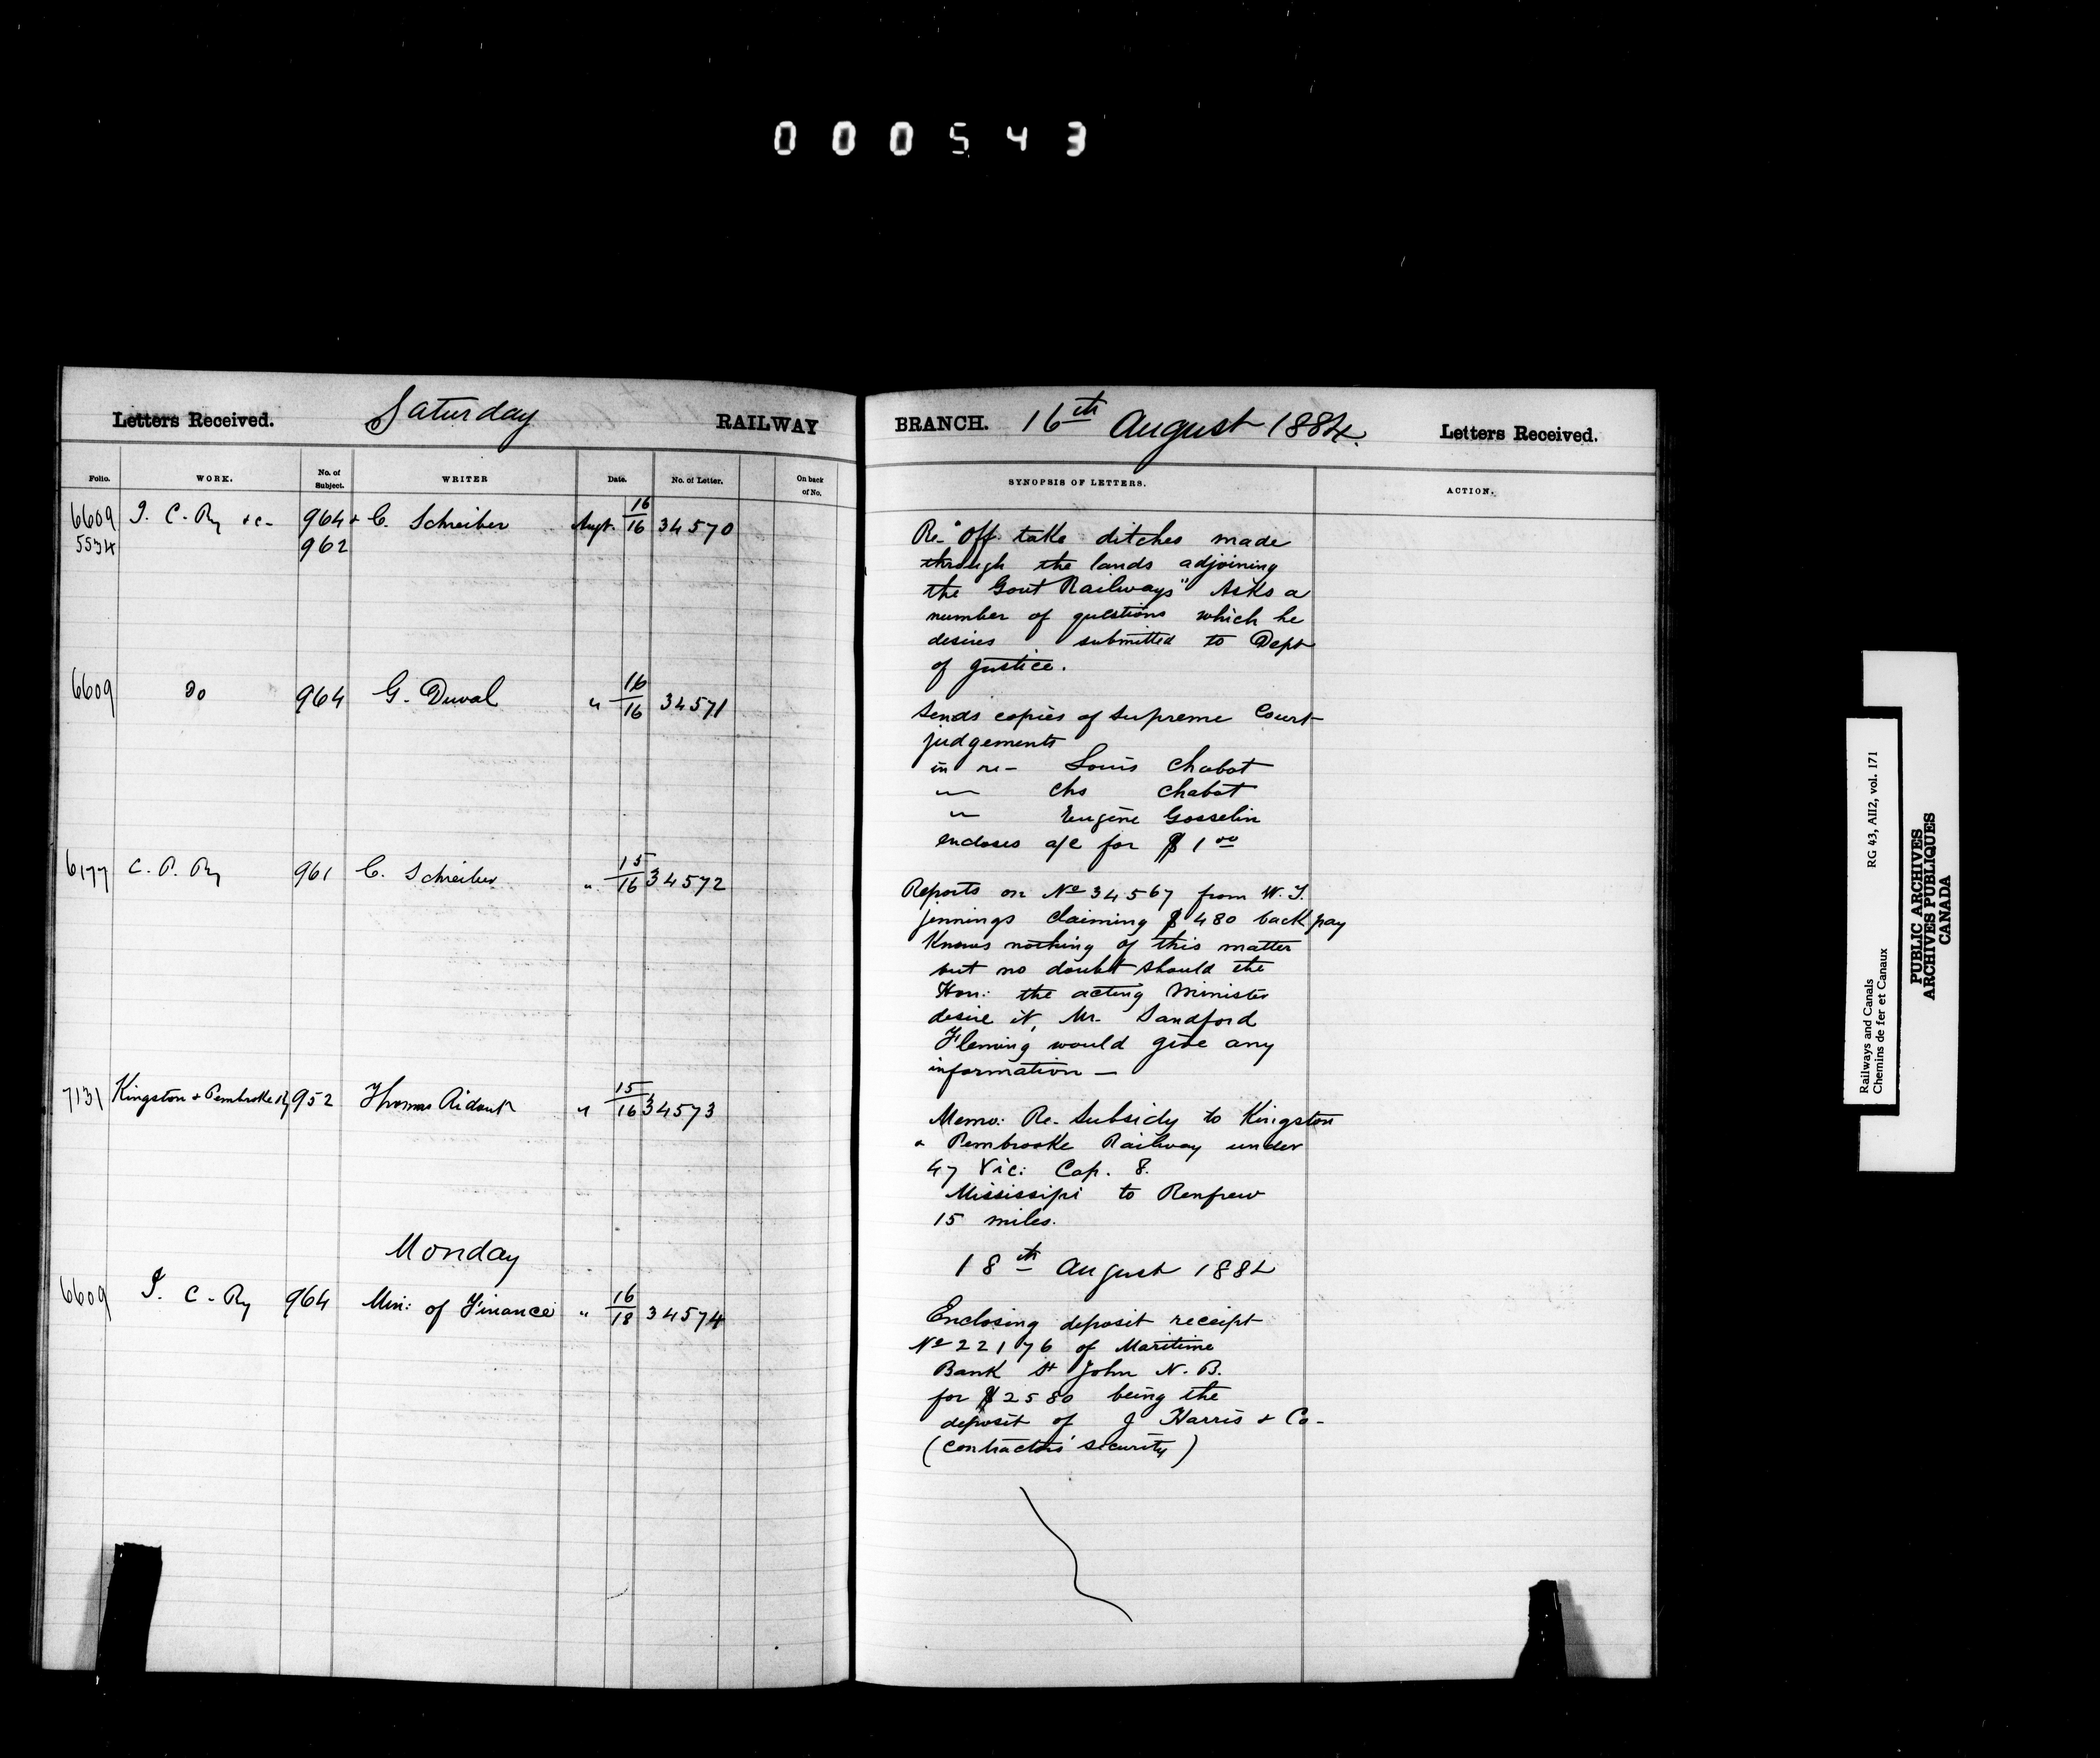 000543
Letters Received. Saturday RAILWAY
Folio. WORK. No. of Subject. WRITER Date. No. of Letter. On back of No.
6609 I. C. Ry +c- 964+ C. Schreiber Augt. 16/16 34570
5534 962
6609 do 964 G. Duval " 16/16 34571
6177 C. P. Ry 961 C. Schreiber " 15/16 34572
7131 Kingston + Pembroke Ry 952 Thomas Ridout " 15/16 34573
Monday
6609 I. C. Ry 964 Min: of Finance " 16/18 34574
BRANCH. 16th August 1884. Letters Received.
SYNOPSIS OF LETTERS. ACTION.
Re- "Off take ditches made
through the lands adjoining
the Govt Railways" Asks a
number of questions which he
desires submitted to Dept
of Justice.
Sends copies of Supreme Court
judgements
in re- Louis Chabot
" Chs Chabot
" Eugène Gosselin
encloses a/c for $1 00
Reports on No 34567 from W. T.
Jennings claiming $480 back pay
Knows nothing of this matter
but no doubt should the
Hon: the acting Minister
desire it, Mr. Sandford
Fleming would give any
information —
Memo: Re. Subsidy to Kingston
& Pembrooke Railway under
47 Vic: Cap. 8.
Mississipi to Renfrew
15 miles.
18th August 1884
Enclosing deposit receipt
No 22176 of Maritime
Bank St John N. B.
for $2580 being the
deposit of J Harris + Co-
(contractors' security)
Railways and Canals RG 43, AII2, vol. 171
Chemins de fer et Canaux
PUBLIC ARCHIVES
ARCHIVES PUBLIQUES
CANADA